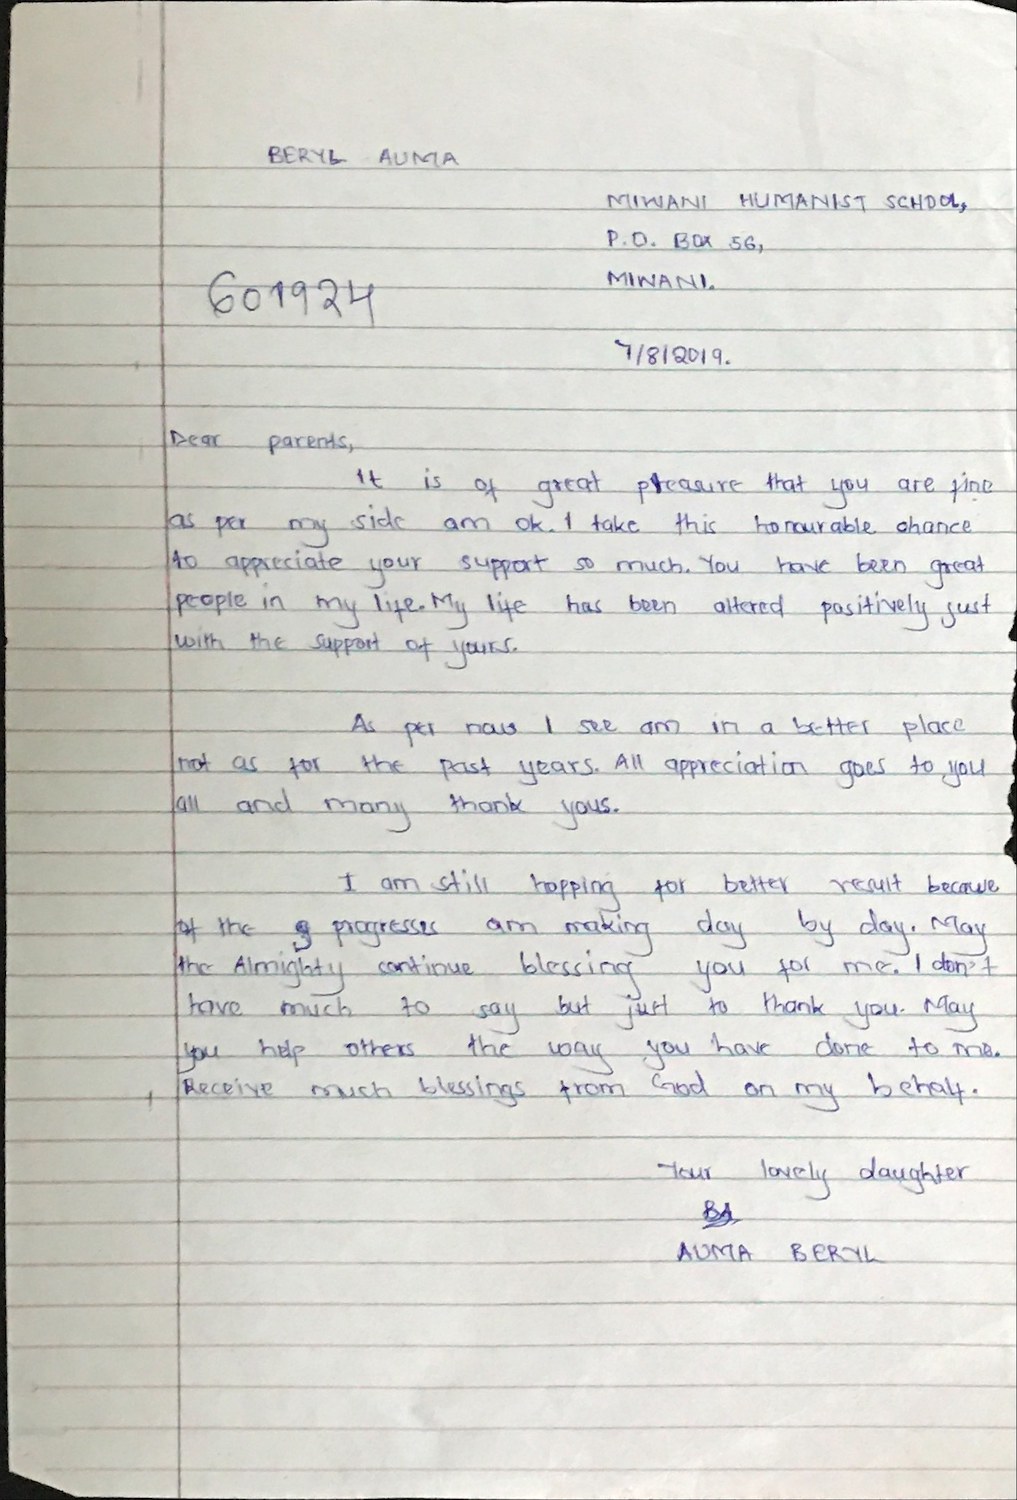 BERYL AUMA
MIWANI HUMANIST SCHOOL,
P.O. BOX 56,
MIWANI.
601924
7/8/2019.
Dear parents,
It is of great pleasure that you are fine
as per my side am ok. I take this honourable chance
to appreciate your support so much. You have been great
people in my life. My life has been altered positively just
with the support of yours.
As per now I see am in a better place
not as for the past years. All appreciation goes to you
all and many thank yous.
I am still hopping for better result because
of the progresses am making day by day. May
the Almighty continue blessing you for me. I don't
have much to say but just to thank you. May
you help others the way you have done to me.
Receive much blessings from God on my behalf.
Your lovely daughter
BA
AUMA BERYL